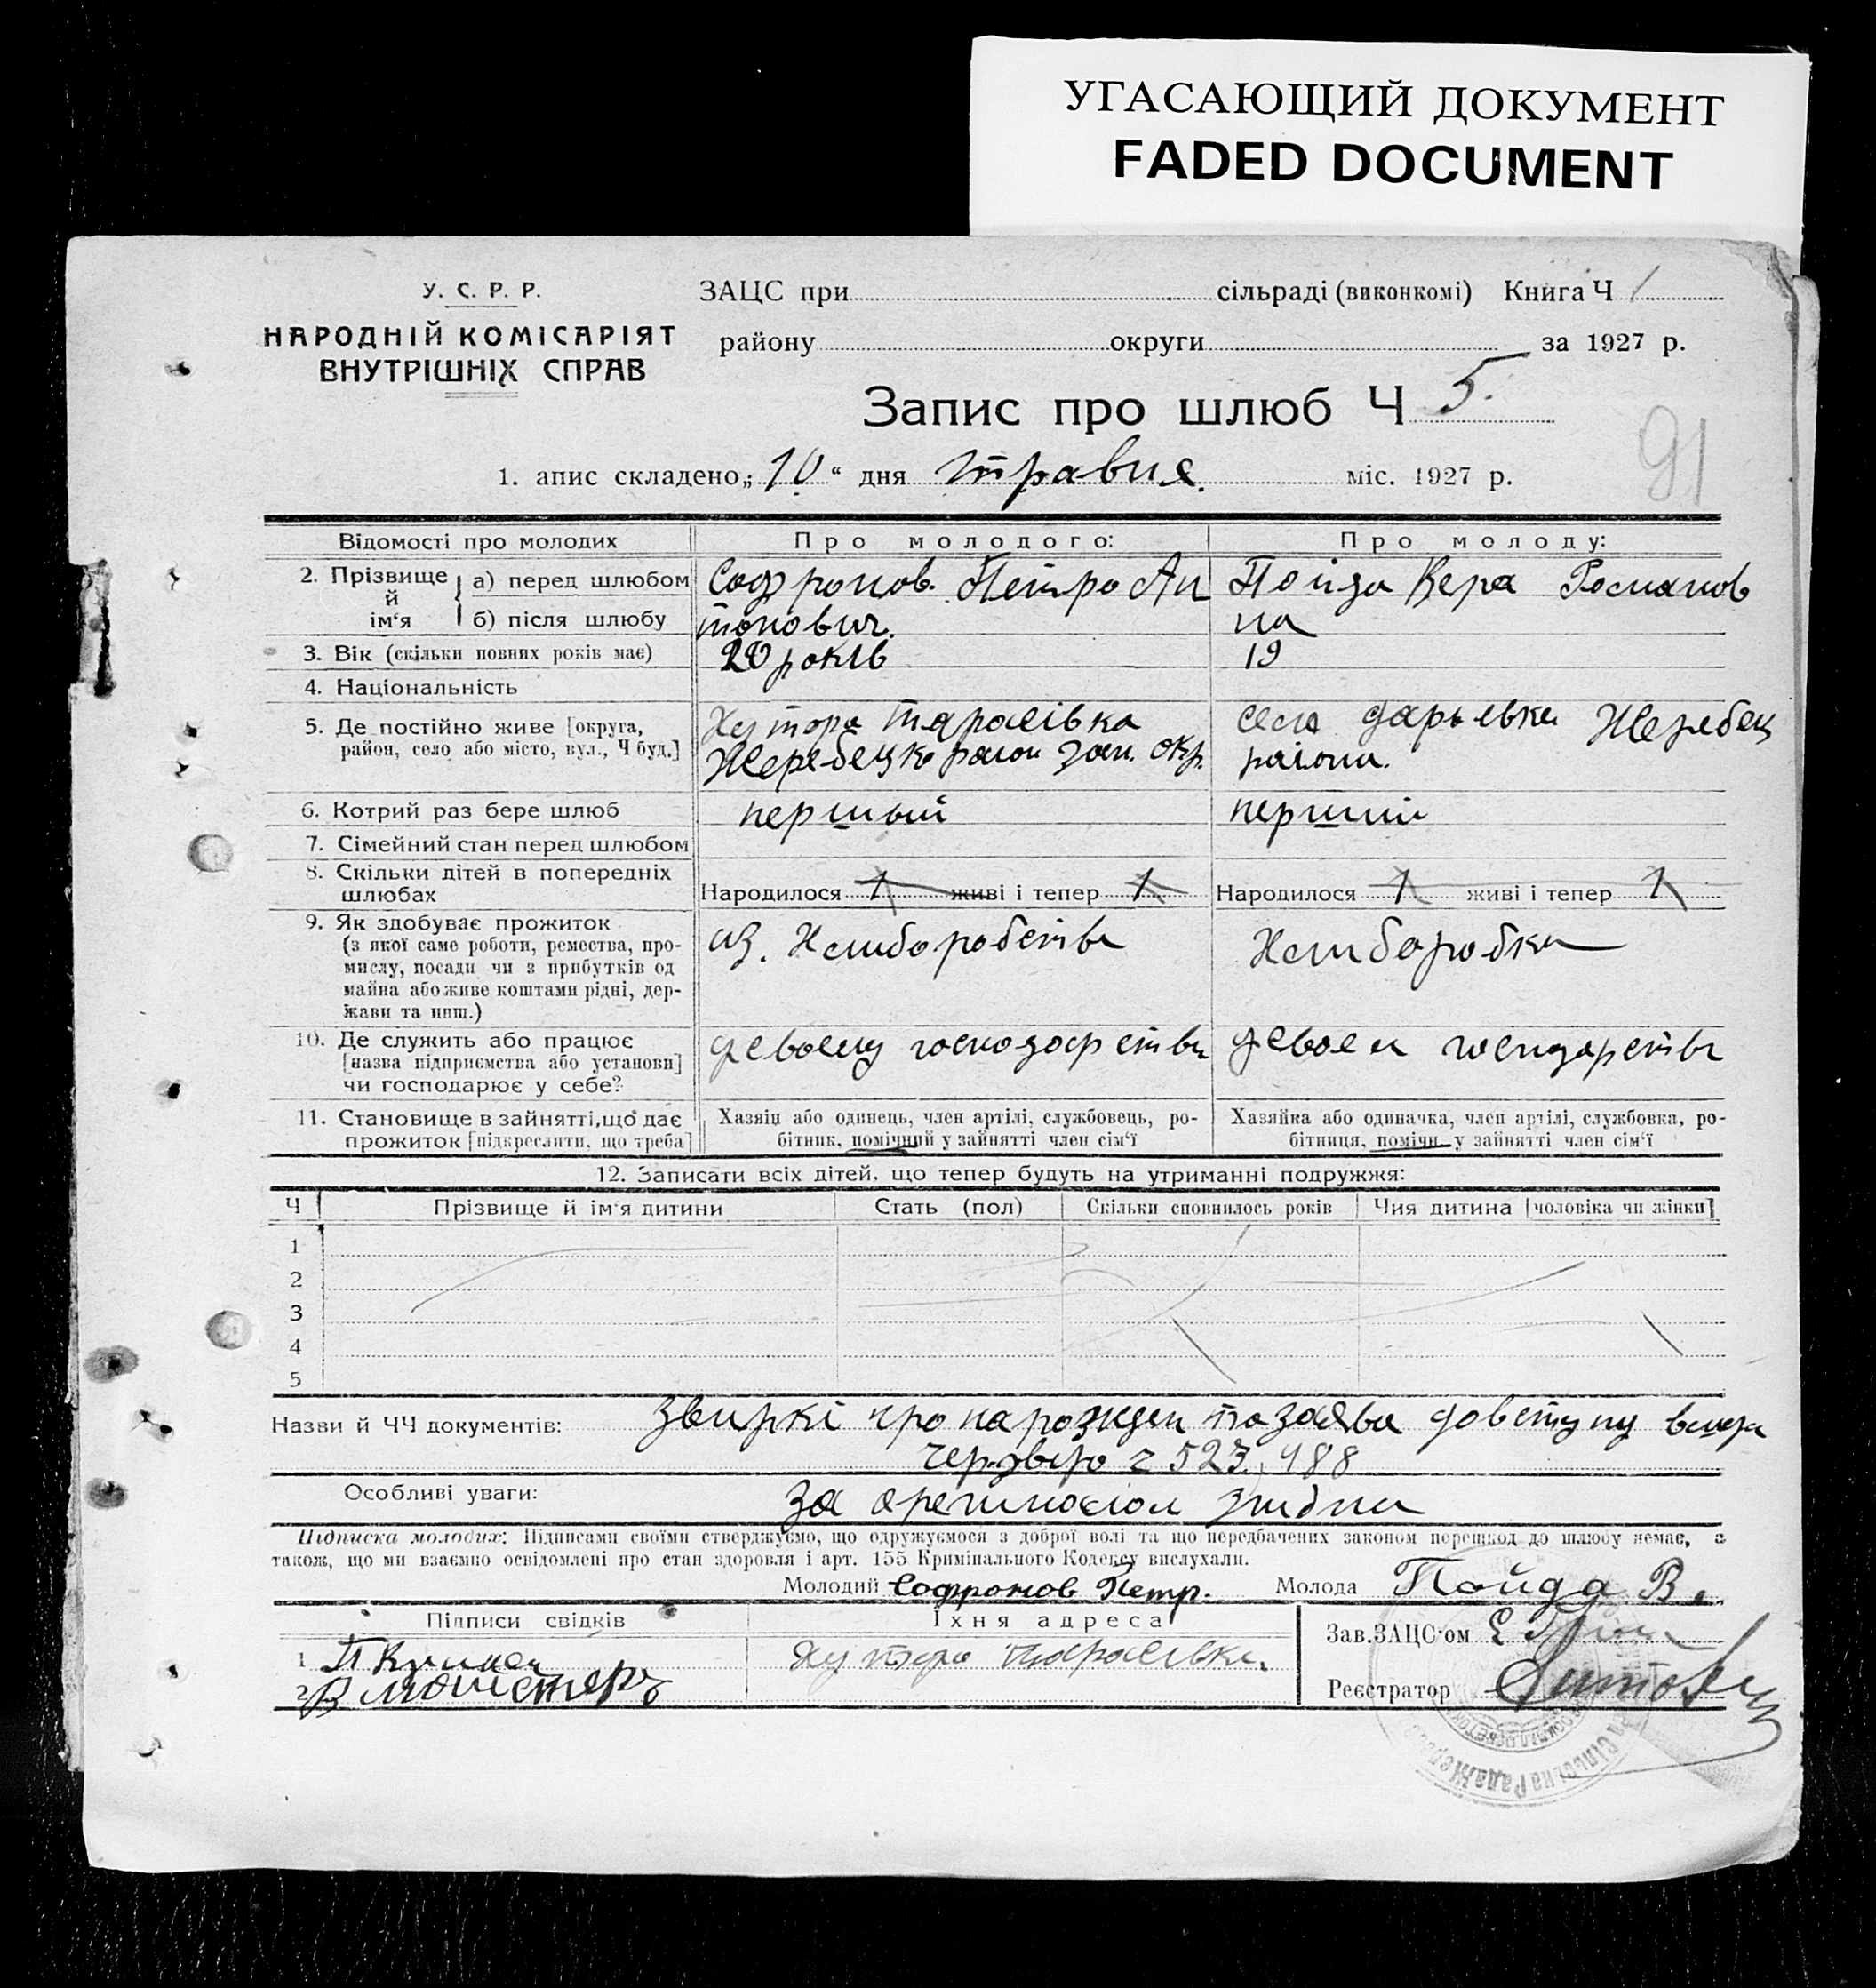 УГАСАЮЩИЙ ДОКУМЕНТ
FADED DOCUMENT
У. С. Р. Р.
НАРОДНІЙ КОМІСАРІЯТ
ВНУТРІШНІХ СПРАВ
ЗАЦС при сільраді (виконкомі) Книга Ч 1
району округи за 1927 р.
Запис про шлюб Ч 5.
91
1. апис складено „10“ дня травня. міс. 1927 р.
Відомості про молодих Про молодого: Про молоду:
2. Прізвище й ім‘я а) перед шлюбом Софронов Петро Ан Пойда Вера Романов
б) після шлюбу тонович. на
3. Вік (скільки повних років має) 20 років 19
4. Національність
5. Де постійно живе [округа, Хутора Тарасівка села Дарьевка Жеребец
район, село або місто, вул., Ч буд.] Жеребецько район зап. окр. района.
6. Котрий раз бере шлюб першый перший
7. Сімейний стан перед шлюбом
8. Скільки дітей в попередніх
шлюбах Народилося 1 живі і тепер 1 Народилося 1 живі і тепер 1
9. Як здобуває прожиток
(з якої саме роботи, ремества, про-
мислу, посади чи з прибутків од
майна або живе коштами рідні, дер-
жави та инш.)
из. Хлиборобства Хлиборобка
10. Де служить або працює
[назва підприємства або установи]
чи господарює у себе?
усвоему господарстви усвоем
11. Становище в зайнятті, що дає Хазяїн або одинець, член артілі, службовець, ро- Хазяйка або одиначка, член артілі, службовка, ро-
прожиток [підкреслити, що треба] бітник, помічний у зайнятті член сім‘ї бітниця, помічн. у зайнятті член сім‘ї
12. Записати всіх дітей, що тепер будуть на утриманні подружжя:
Ч Прізвище й ім‘я дитини Стать (пол) Скільки сповнилось років Чия дитина [чоловіка чи жінки]
1
2
3
4
5
Назви й ЧЧ документів: про нарожден та заява
523, 488
Особливі уваги: За
Підписка молодих: Підписами своїми стверджуємо, що одружуємося з доброї волі та що передбачених законом перешкод до шлюбу немає, а
також, що ми взаємно освідомлені про стан здоровля і арт. 155 Кримінального Кодексу вислухали.
Молодий Софронов Петр. Молода Пойда В.
Підписи свідків Їхня адреса Зав. ЗАЦС‘ом
1 Хутора Тарасівки.
2 Реєстратор